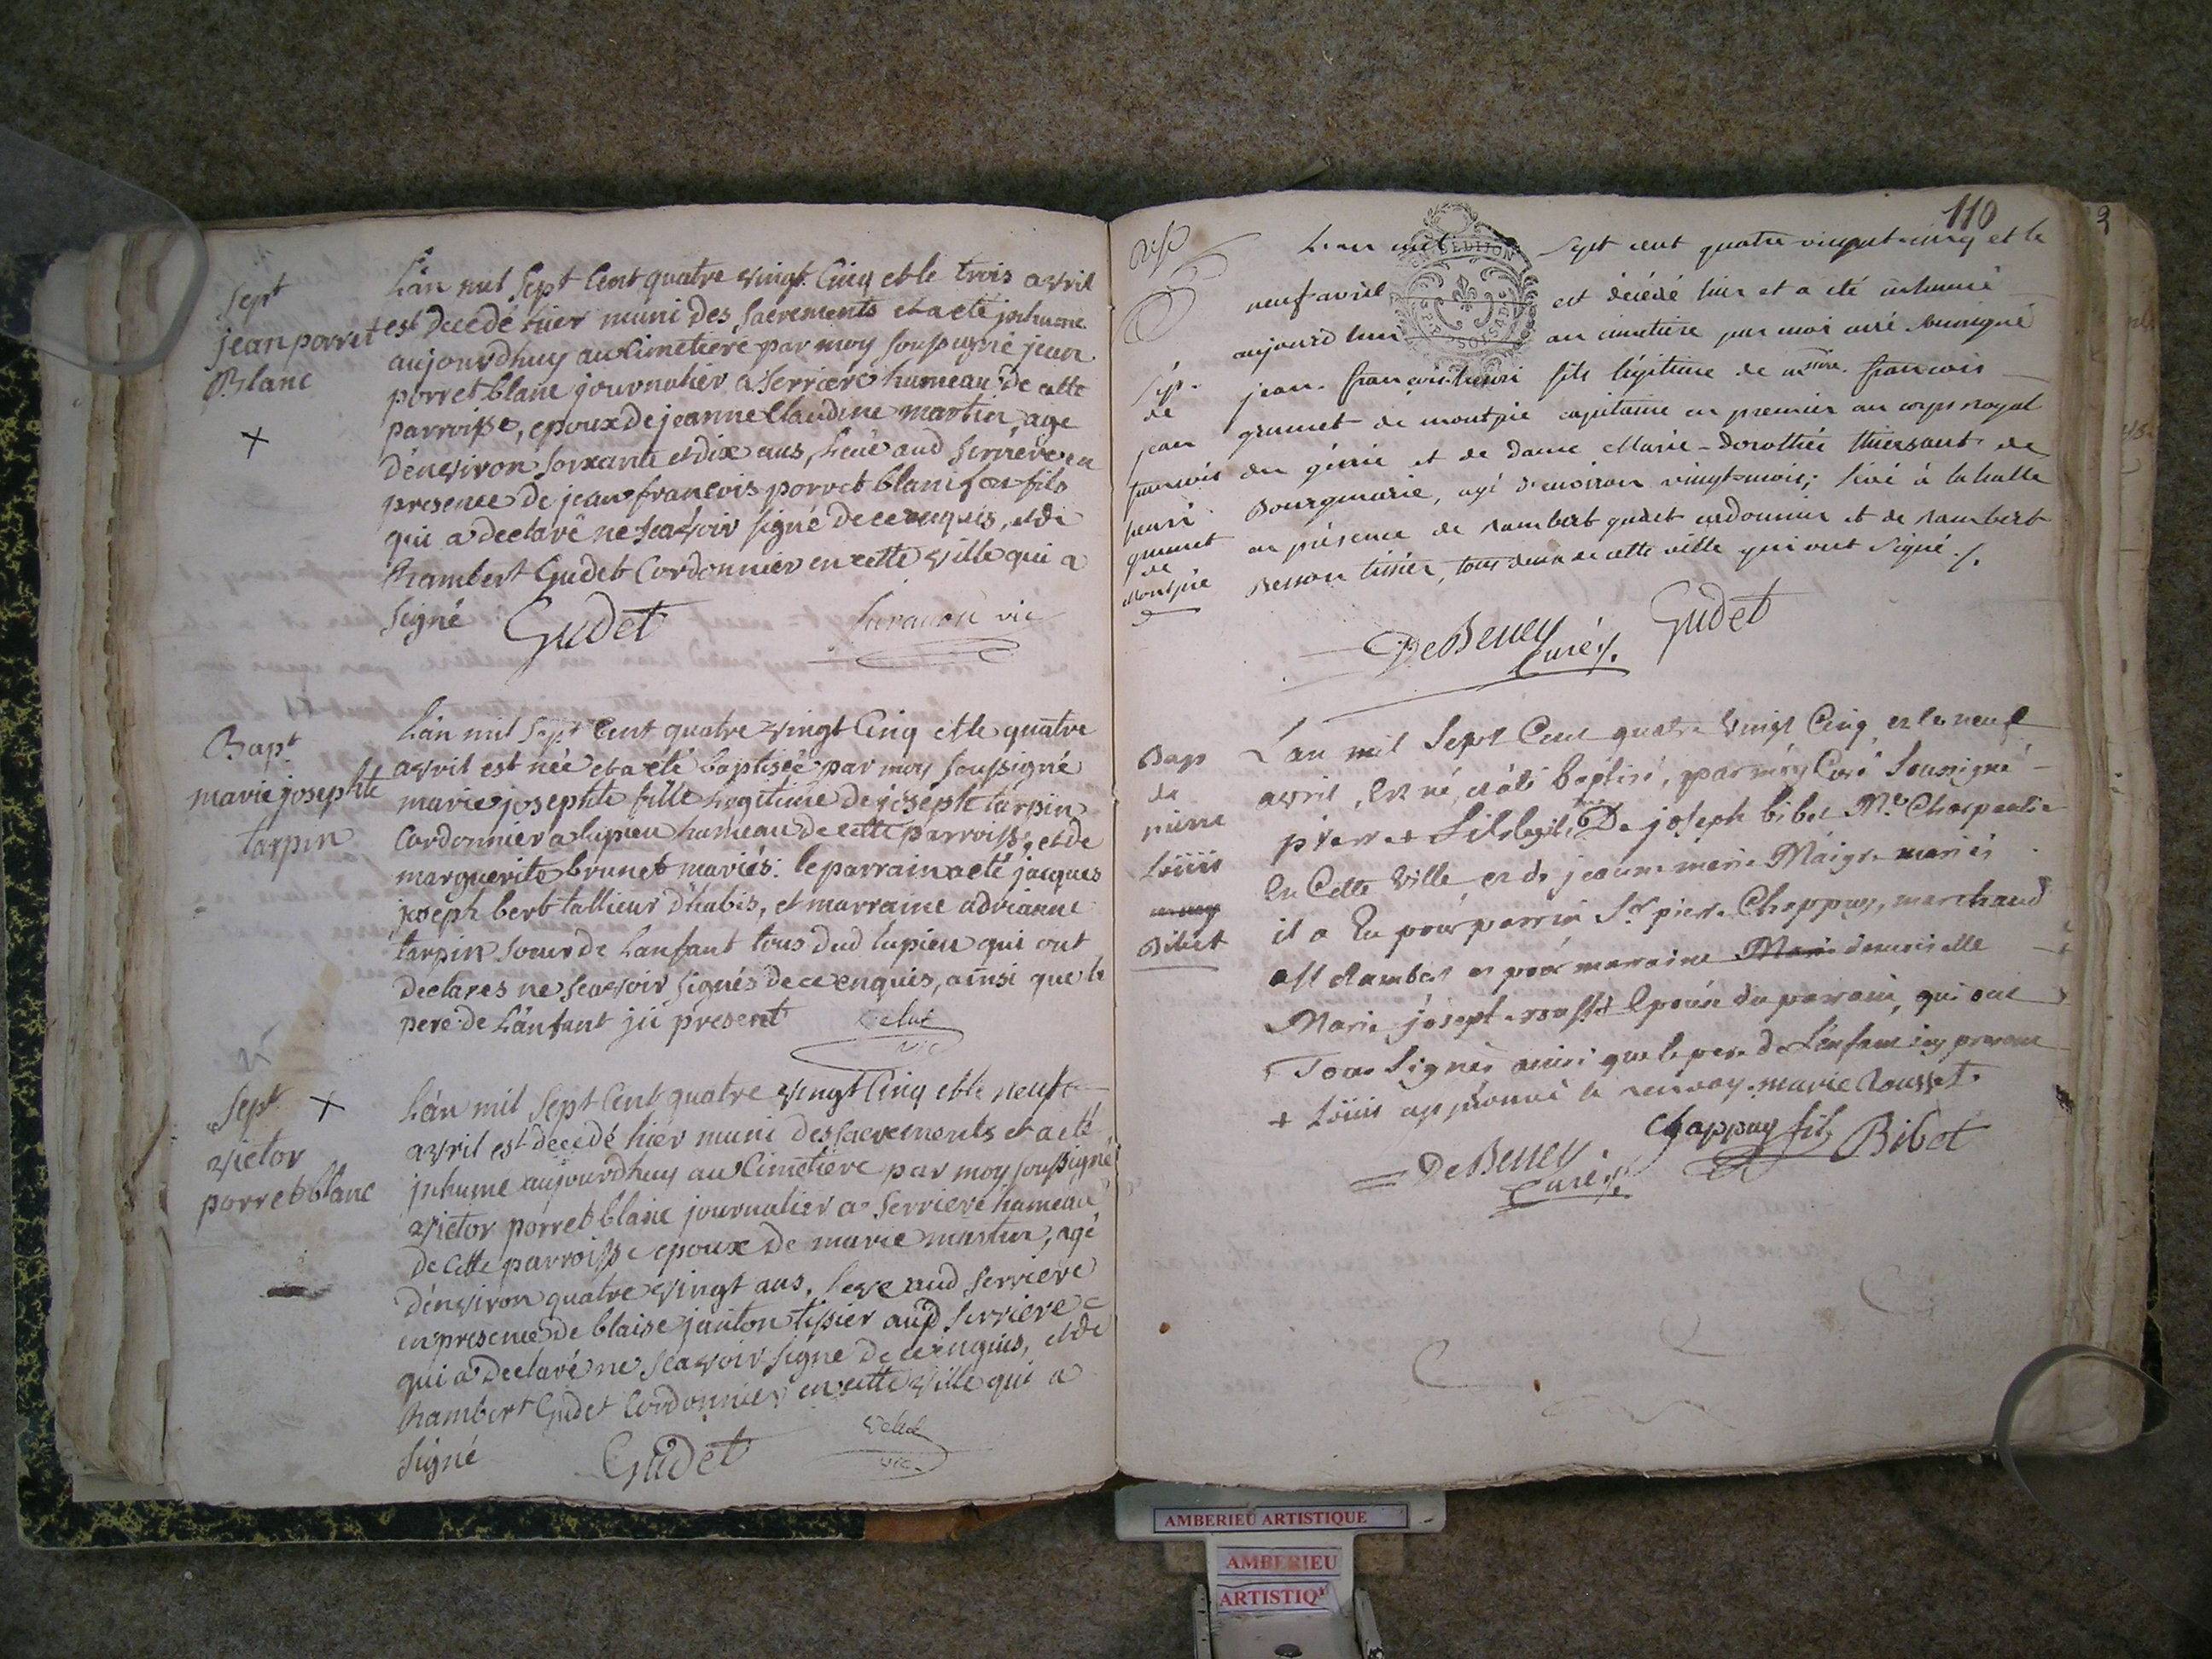 Sept
jean porret
Blanc
L'an mil sept Cent quatre vingt Cinq et le trois avril
est decedé hier muni des sacrements et a eté jnhumé
aujourdhuy au Cimetiere par moy soussigné jean
porret blanc journalier a serriere hameau de cette
parroisse, epoux de jeanne Claudine martin, age
d'environ soixante et dix ans, levé aud serriere en
presence de jean francois porret blanc son fils
qui a declaré ne scavoir signé de ce enquis, et de
Rambert Gudet Cordonnier en cette ville qui a
signé Gudet vic
Bapt
marie josephte
tarpin
L'an mil sept Cent quatre vingt Cinq et le quatre
avril est née et a eté baptisée par moy soussigné
marie josephte fille legitime de joseph tarpin
Cordonnier a lupieu hameau de cette parroisse, et de
marguerite brunet mariés: le parrain a eté jacques
joseph berb tallieur d'habis, et marraine adrianne
tarpin soeur de Lanfant tous dud lupieu qui ont
declares ne scavoir signés de ce enquis, ainsi que le
pere de L'anfant jci present
vic
Sept
victor
porret blanc
L'an mil sept Cent quatre vingt Cinq et le neuf
avril est decedé hier muni des sacrements et a eté
jnhume aujourdhuy au Cimetiere par moy soussigné
victor porret blanc journalier a serriere hameau
de cette parroisse epoux de marie martin, agé
d'environ quatre vingt ans, levé aud serriere
en presence de blaise janton tissier aud serriere
qui a declaré ne scavoir signe de ce enquis, et de
Rambert Gudet Cordonnier en cette ville qui a
signé Gudet vic
110
L'an mil sept cent quatre vingt-cinq et le
neuf avril est décédé hier et a été inhumé
aujourd'hui au cimetière par moi curé soussigné
jean-francois-henri fils légitime de messire francois
grumet de montpie capitaine en premier au corps royal
du génie et de dame Marie-Dorothée thiersaut de
Bourgmarie, agé d'environ vingt mois; levé à la halle
en présence de rambert gudet cordonnier et de rambert
Besson tissier, tous deux de cette ville qui ont signé ./.
Sep.
de
jean
francois
henri
grumet
de
Montpie
De Beney Curé Gudet
DIJON
Bap
de
pierre
Loüis
Bibet
L'an mil Sept Cent quatre Vingt Cinq et le neuf
avril, Est né, et a été baptisé, par moy Curé Soussigné
pierre + fils legit. De joseph bibet Me. Charpentie
En Cette Ville et de jeanne marie Maigre mariés
il a Eu pour parrin Sr. pierre Chappuy, marchand
a St Rambert et pour marraine demoiselle
Marie josept rousset Epouse du parrain, qui ont
Tous Signés ainsi que le pere de L'enfant icy present
+ Loüis approuvé le renvoy. marie Rousset.
De Beney Curé Chappuy fils Bibet
AMBERIEU ARTISTIQUE
AMBERIEU
ARTISTIQ